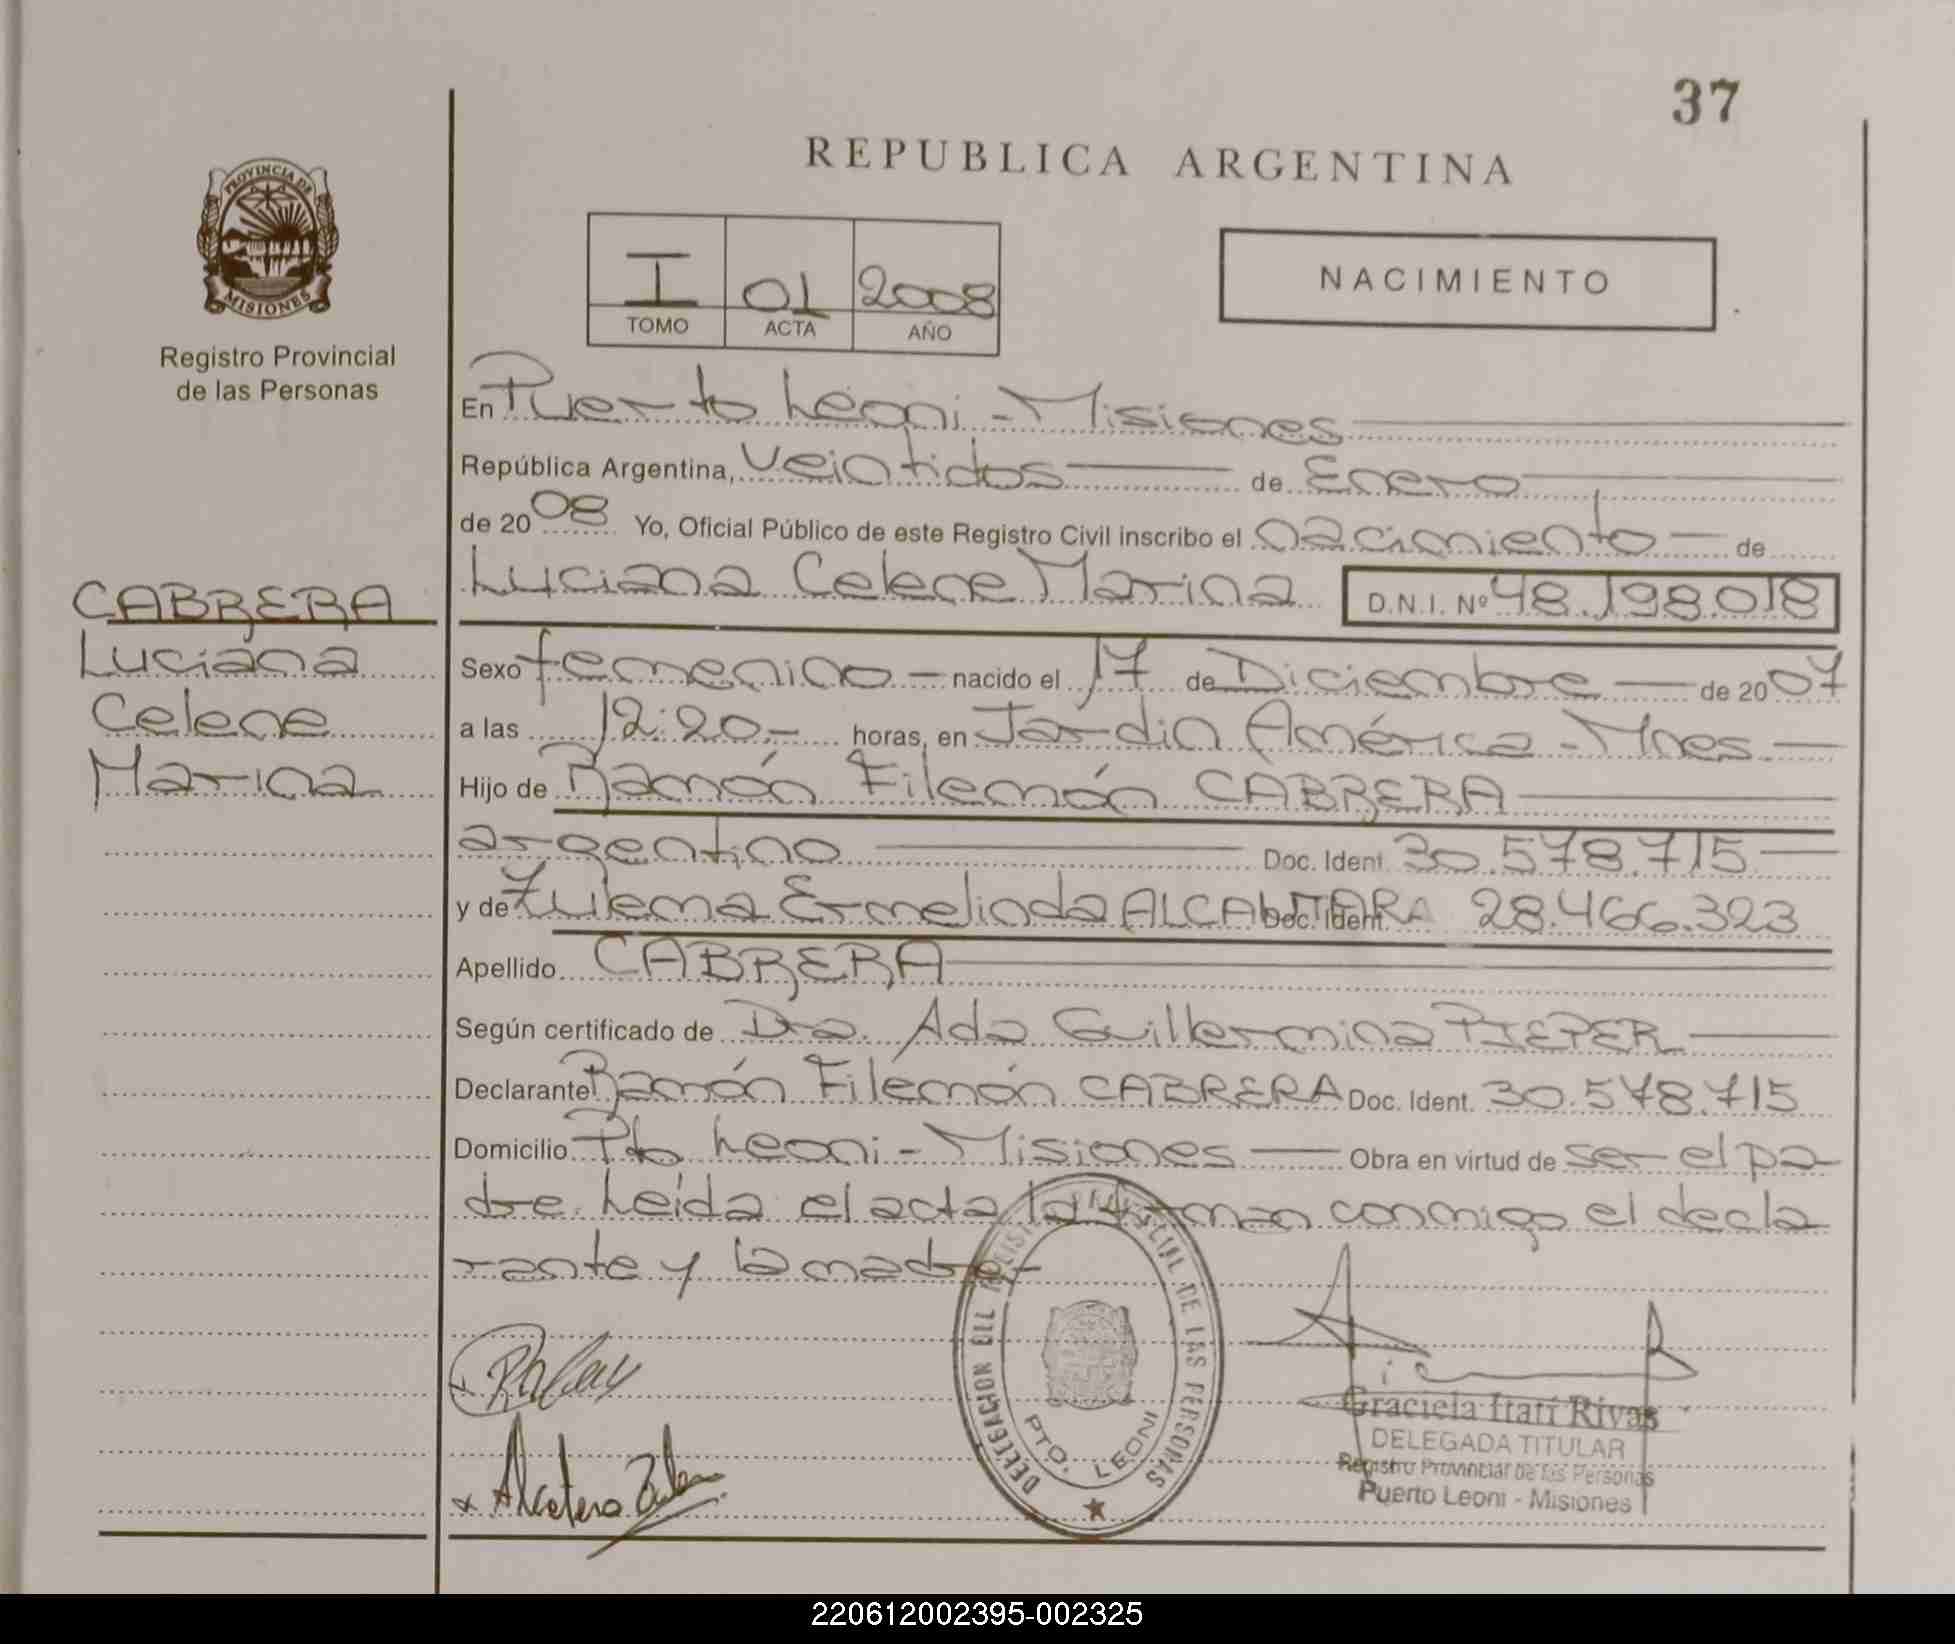 37
REPUBLICA ARGENTINA
PROVINCIA DE
MISIONES
Registro Provincial
de las Personas
I 01 2008
TOMO ACTA AÑO
NACIMIENTO
En Puerto Leoni - Misiones
República Argentina, veintidos de Enero
de 2008 Yo, Oficial Público de este Registro Civil inscribo el nacimiento de
Luciana Celene Marina D.N.I. Nº 48.198.018
CABRERA
Luciana
Celene
Marina
Sexo femenino - nacido el 17 de Diciembre de 2007
a las 12:20.- horas, en Jardin América - Mnes.
Hijo de Ramón Filemón CABRERA
argentino Doc. Ident. 30.578.715
y de Zulema Ermelinda ALCANTARA Doc. Ident. 28.466.323
Apellido CABRERA
Según certificado de Dra. Ada Guillermina PIEPER
Declarante Ramón Filemón CABRERA Doc. Ident. 30.578.715
Domicilio Pto Leoni - Misiones Obra en virtud de ser el pa
dre. Leída el acta la firman conmigo el decla
rante y la madre.-
DELEGACION DE LAS PERSONAS
PTO. LEONI
Graciela Itatí Rivas
DELEGADA TITULAR
Registro Provincial de las Personas
Puerto Leoni - Misiones
220612002395-002325